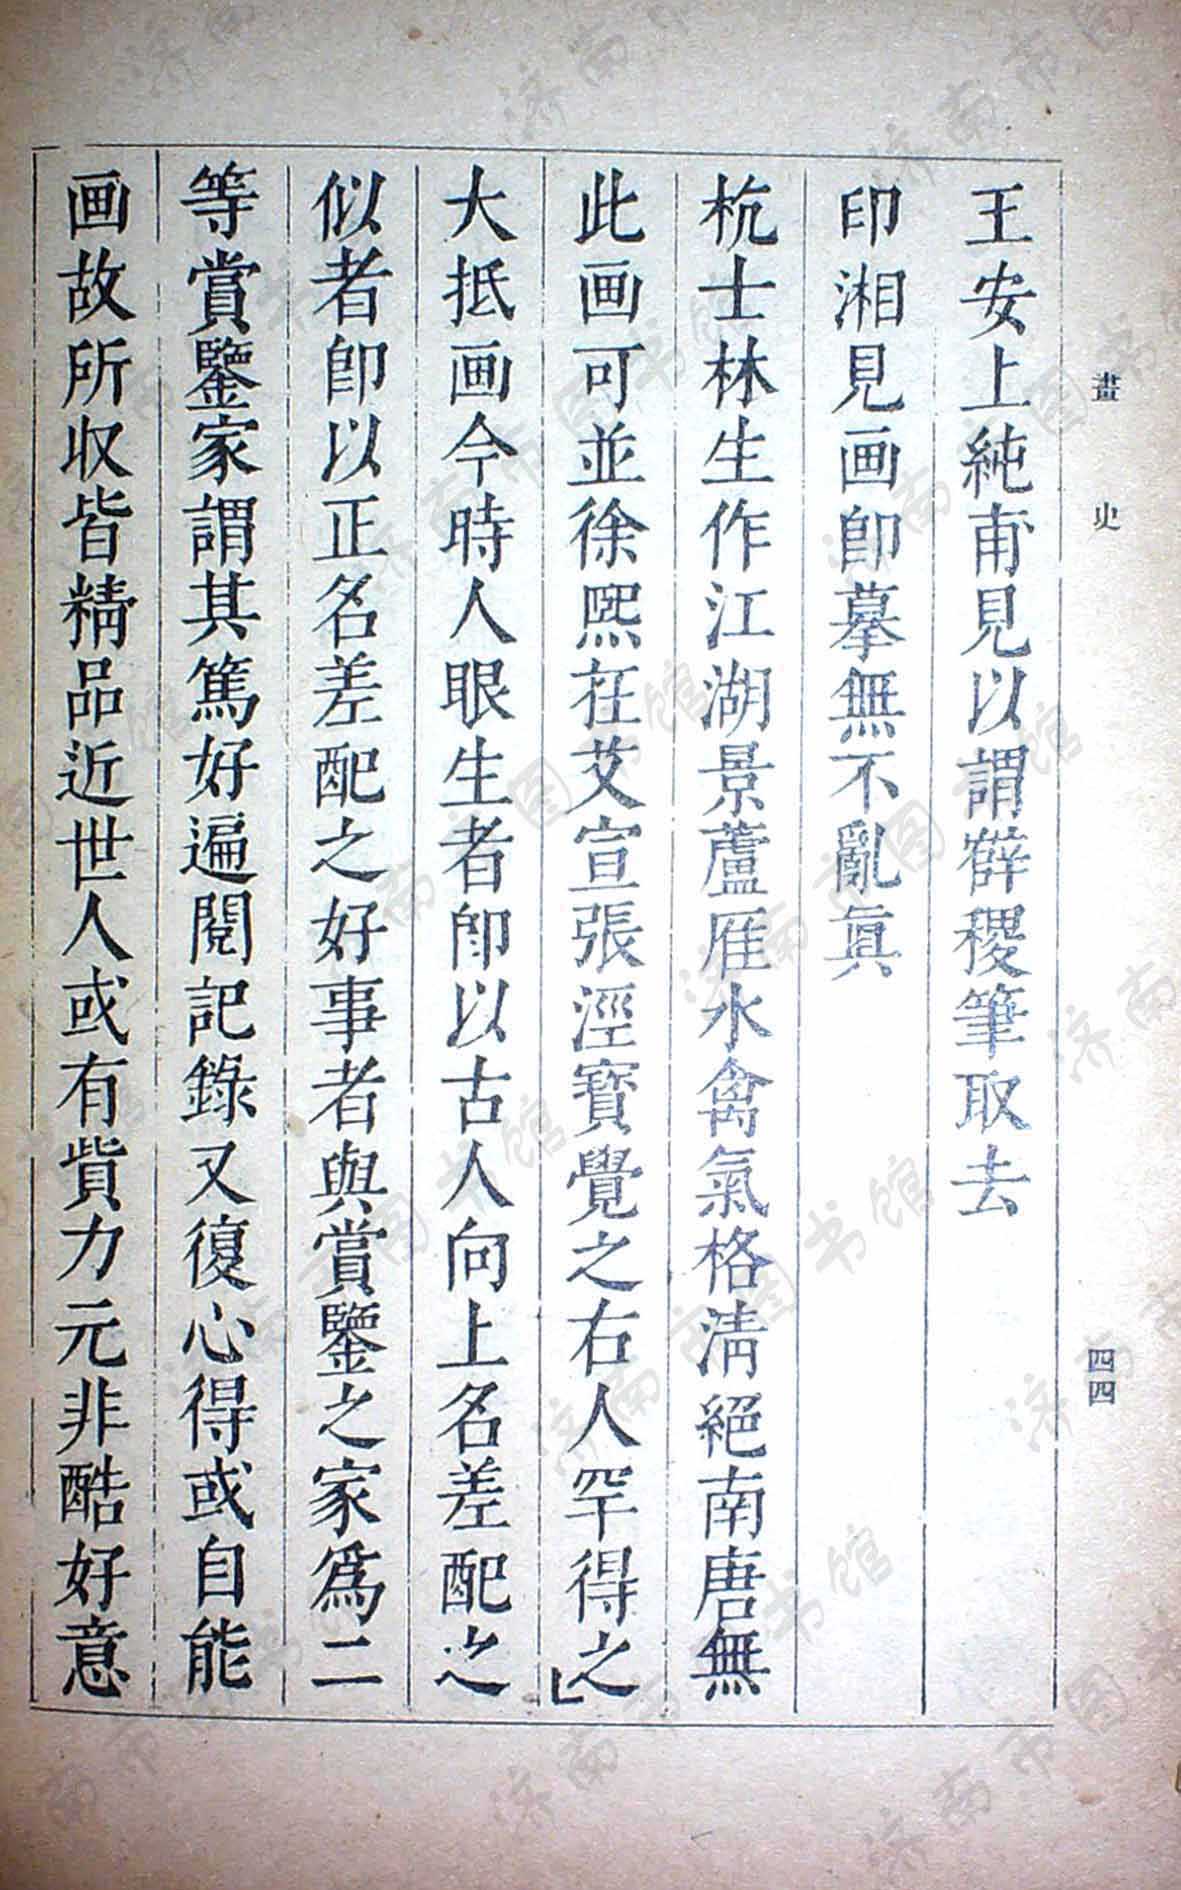 畫史
四四
王安上純甫見以謂薛稷筆取去
印湘見画卽摹無不亂眞
杭士林生作江湖景蘆雁水禽氣格清絕南唐無
此画可並徐熙在艾宣張涇寶覺之右人罕得之
大抵画今時人眼生者卽以古人向上名差配之
似者卽以正名差配之好事者與賞鑒之家爲二
等賞鑒家謂其篤好遍閱記錄又復心得或自能
画故所收皆精品近世人或有貲力元非酷好意
济南市图书馆